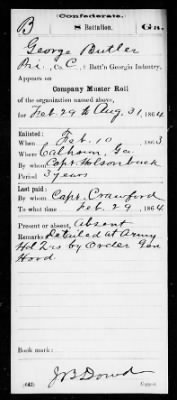 Confederate.
B 8 Battalion. Ga.
George Butler
Pri., Co. C, 8 Batt'n Georgia Infantry.
Appears on
Company Muster Roll
of the organization named above,
for Feb. 29 to Aug 31, 1864
Enlisted:
When Feb. 10, 1863
Where Calhoun, Ga.
By whom Capt. Holsonbuck
Period 3 years
Last paid:
By whom Capt. Crawford
To what time Feb. 29, 1864
Present or absent, Absent
Remarks: Detailed at Army
Hd Qrs by Order Gen
Hood.
Book mark:
J B Dowd
(642) Copyist.